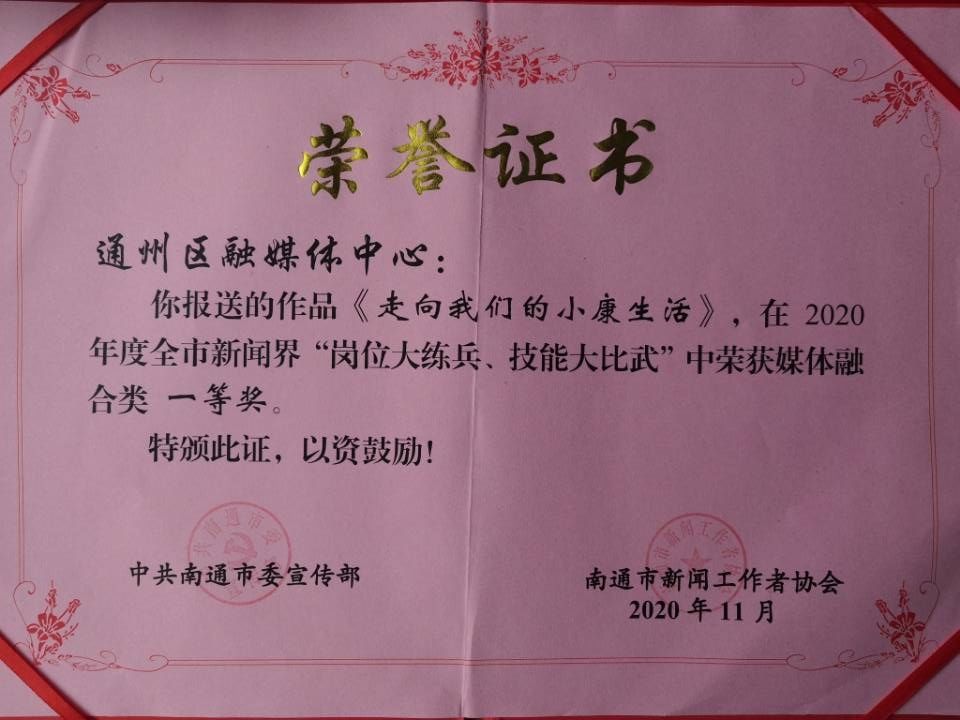 荣誉证书
通州区融媒体中心：
你报送的作品《走向我们的小康生活》，在 2020
年度全市新闻界“岗位大练兵、技能大比武”中荣获媒体融
合类 一等奖。
特颁此证，以资鼓励！
中共南通市委宣传部
南通市新闻工作者协会
2020 年 11 月